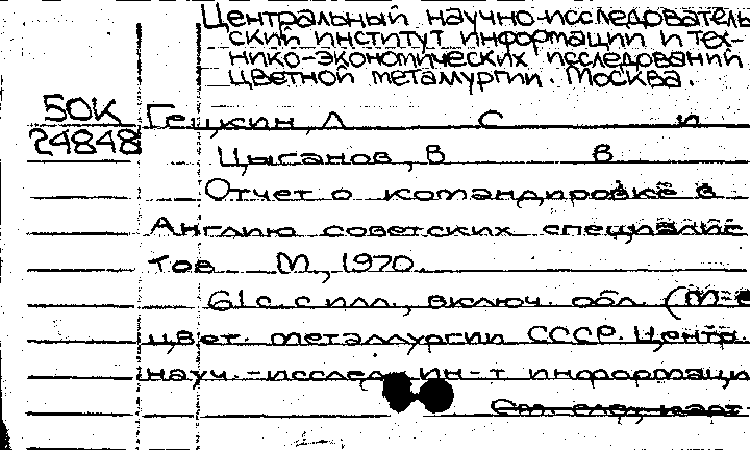 Центральный научно-исследователь
ский институт информации и тех-
нико-экономических исследований
цветной металлургии. Москва.
50К
24848
Гецкин, Л С и
Цыганов, В В
Отчет о командировке в
Англию советских специалис
тов М, 1970.
61 с. с илл., включ. обл. (М-в
цвет. металлургии СССР. Центр.
науч.-исслед. ин-т информаци
См. след. карт